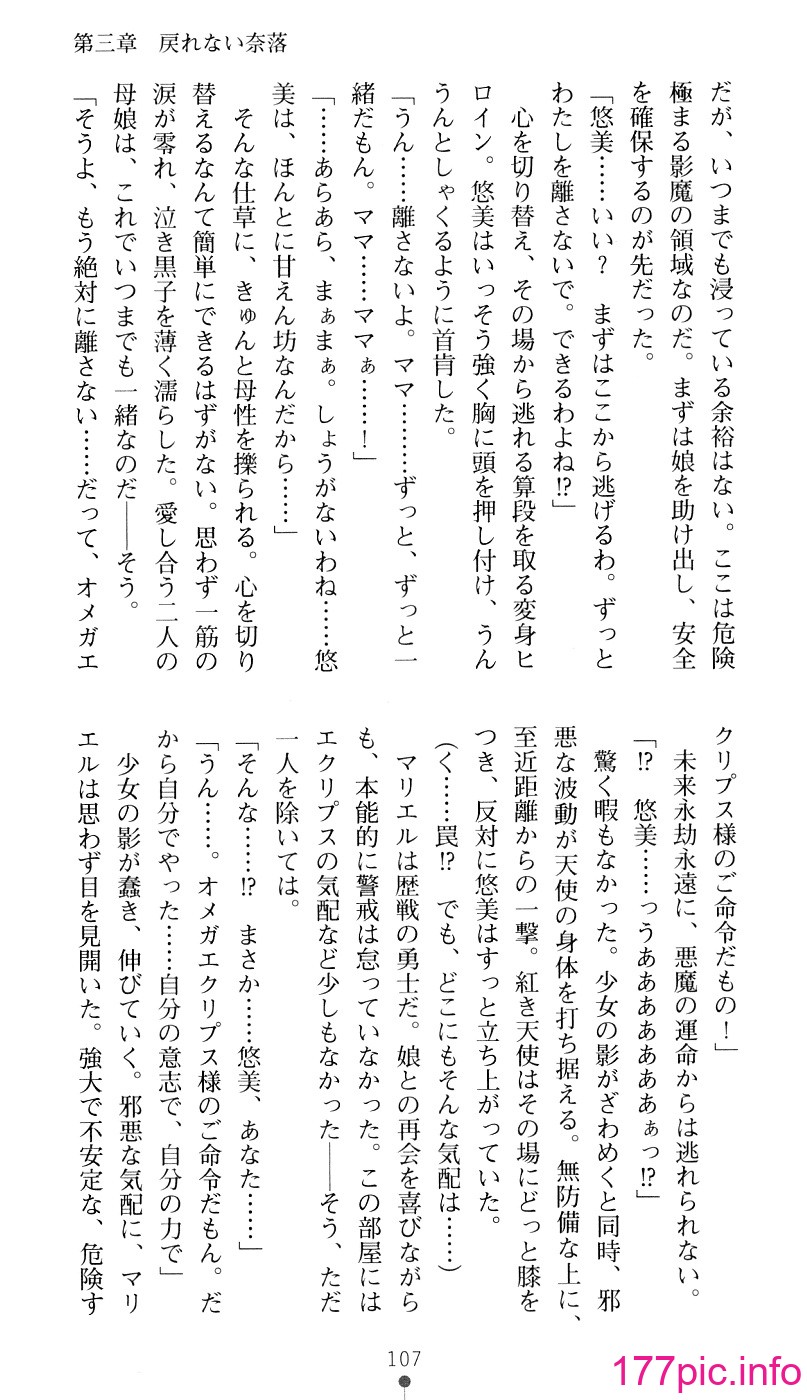 第三章　戻れない奈落
だが、いつまでも浸っている余裕はない。ここは危険
極まる影魔の領域なのだ。まずは娘を助け出し、安全
を確保するのが先だった。
「悠美……いい？　まずはここから逃げるわ。ずっと
わたしを離さないで。できるわよね!?」
　心を切り替え、その場から逃れる算段を取る変身ヒ
ロイン。悠美はいっそう強く胸に頭を押し付け、うん
うんとしゃくるように首肯した。
「うん……離さないよ。ママ………ずっと、ずっと一
緒だもん。ママ……ママぁ……！」
「……あらあら、まぁまぁ。しょうがないわね……悠
美は、ほんとに甘えん坊なんだから……」
　そんな仕草に、きゅんと母性を擽られる。心を切り
替えるなんて簡単にできるはずがない。思わず一筋の
涙が零れ、泣き黒子を薄く濡らした。愛し合う二人の
母娘は、これでいつまでも一緒なのだ――そう。
「そうよ、もう絶対に離さない……だって、オメガエ
クリプス様のご命令だもの！」
　未来永劫永遠に、悪魔の運命からは逃れられない。
「!?　悠美……っうああああああぁっ!?」
　驚く暇もなかった。少女の影がざわめくと同時、邪
悪な波動が天使の身体を打ち据える。無防備な上に、
至近距離からの一撃。紅き天使はその場にどっと膝を
つき、反対に悠美はすっと立ち上がっていた。
（く……罠!?　でも、どこにもそんな気配は……）
　マリエルは歴戦の勇士だ。娘との再会を喜びながら
も、本能的に警戒は怠っていなかった。この部屋には
エクリプスの気配など少しもなかった――そう、ただ
一人を除いては。
「そんな……!?　まさか……悠美、あなた……」
「うん……。オメガエクリプス様のご命令だもん。だ
から自分でやった……自分の意志で、自分の力で」
　少女の影が蠢き、伸びていく。邪悪な気配に、マリ
エルは思わず目を見開いた。強大で不安定な、危険す
107
177pic.info